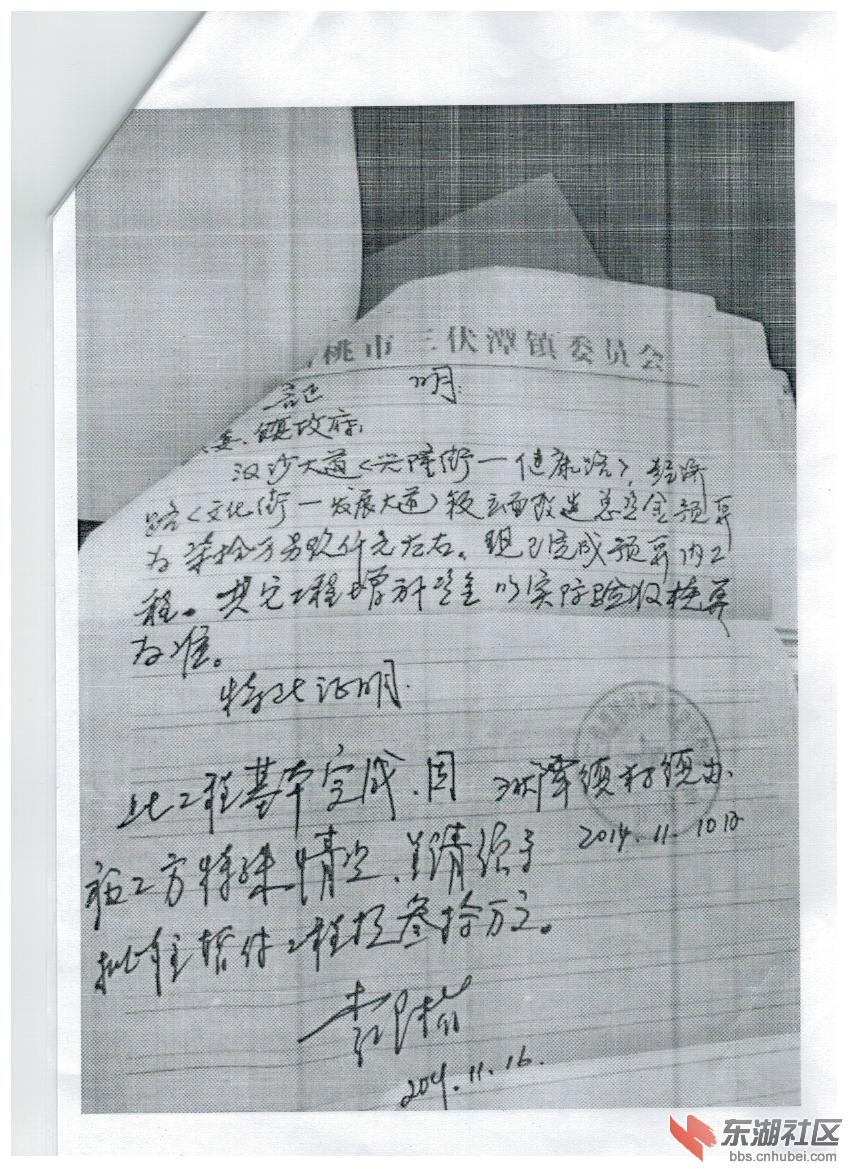 桃市三伏潭镇委员会
证 明
委、镇政府:
汉沙大道(兴隆街—健康路),经济
路(文化街—发展大道)段立面改造总资金预算
为柒拾万另玖仟元左右。现已完成预算内工
程。其它工程增补资金以实际验收核算
为准。
特此证明.
三伏潭镇村镇办.
2014.11.10日
此工程基本完成,因
施工方特殊情况,请领导
批准垫付工程款叁拾万元。
2014.11.16.
东湖社区
bbs.cnhubei.com